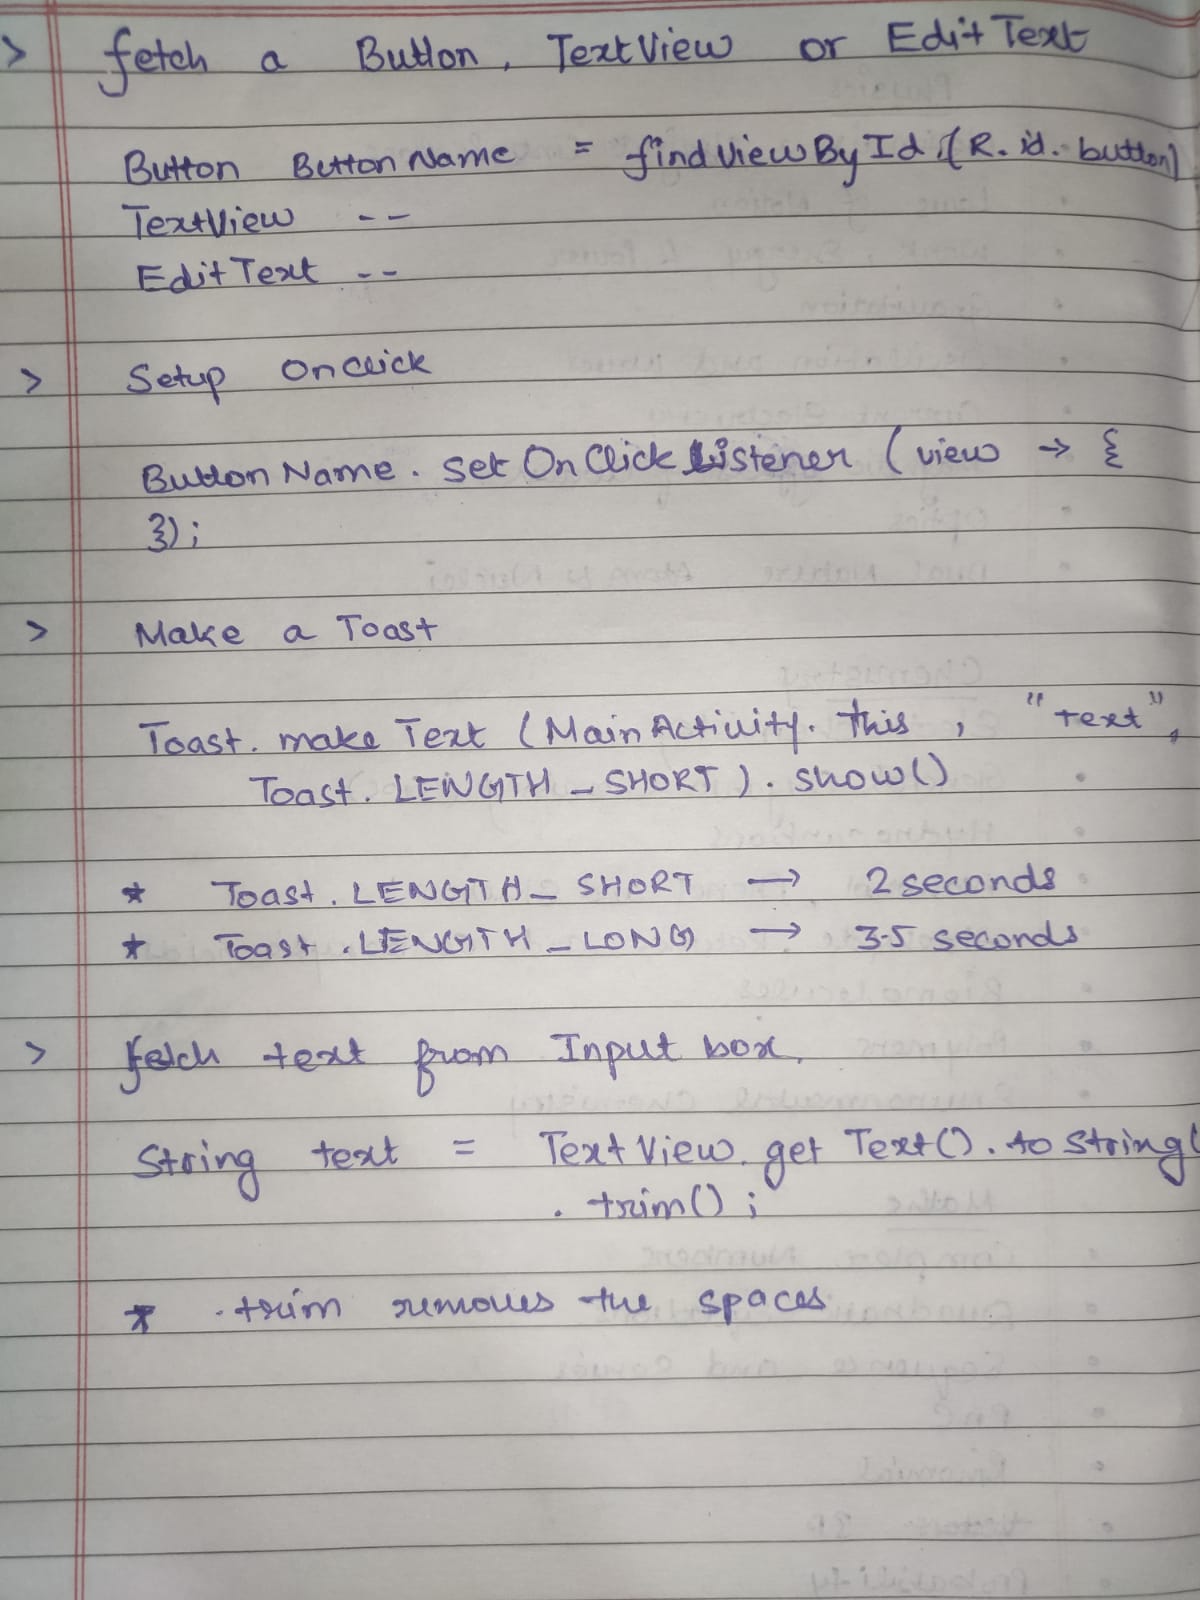 > fetch a Button, TextView or EditText
Button ButtonName = findViewById(R.id.button)
TextView --
EditText --
> Setup Onclick
ButtonName.setOnClickListener (view → {
});
> Make a Toast
Toast.makeText (MainActivity.this, "text",
Toast.LENGTH_SHORT).show()
* Toast.LENGTH_SHORT → 2 seconds
* Toast.LENGTH_LONG → 3.5 seconds
> fetch text from Input box.
String text = TextView.getText().toString(
.trim();
* .trim removes the spaces